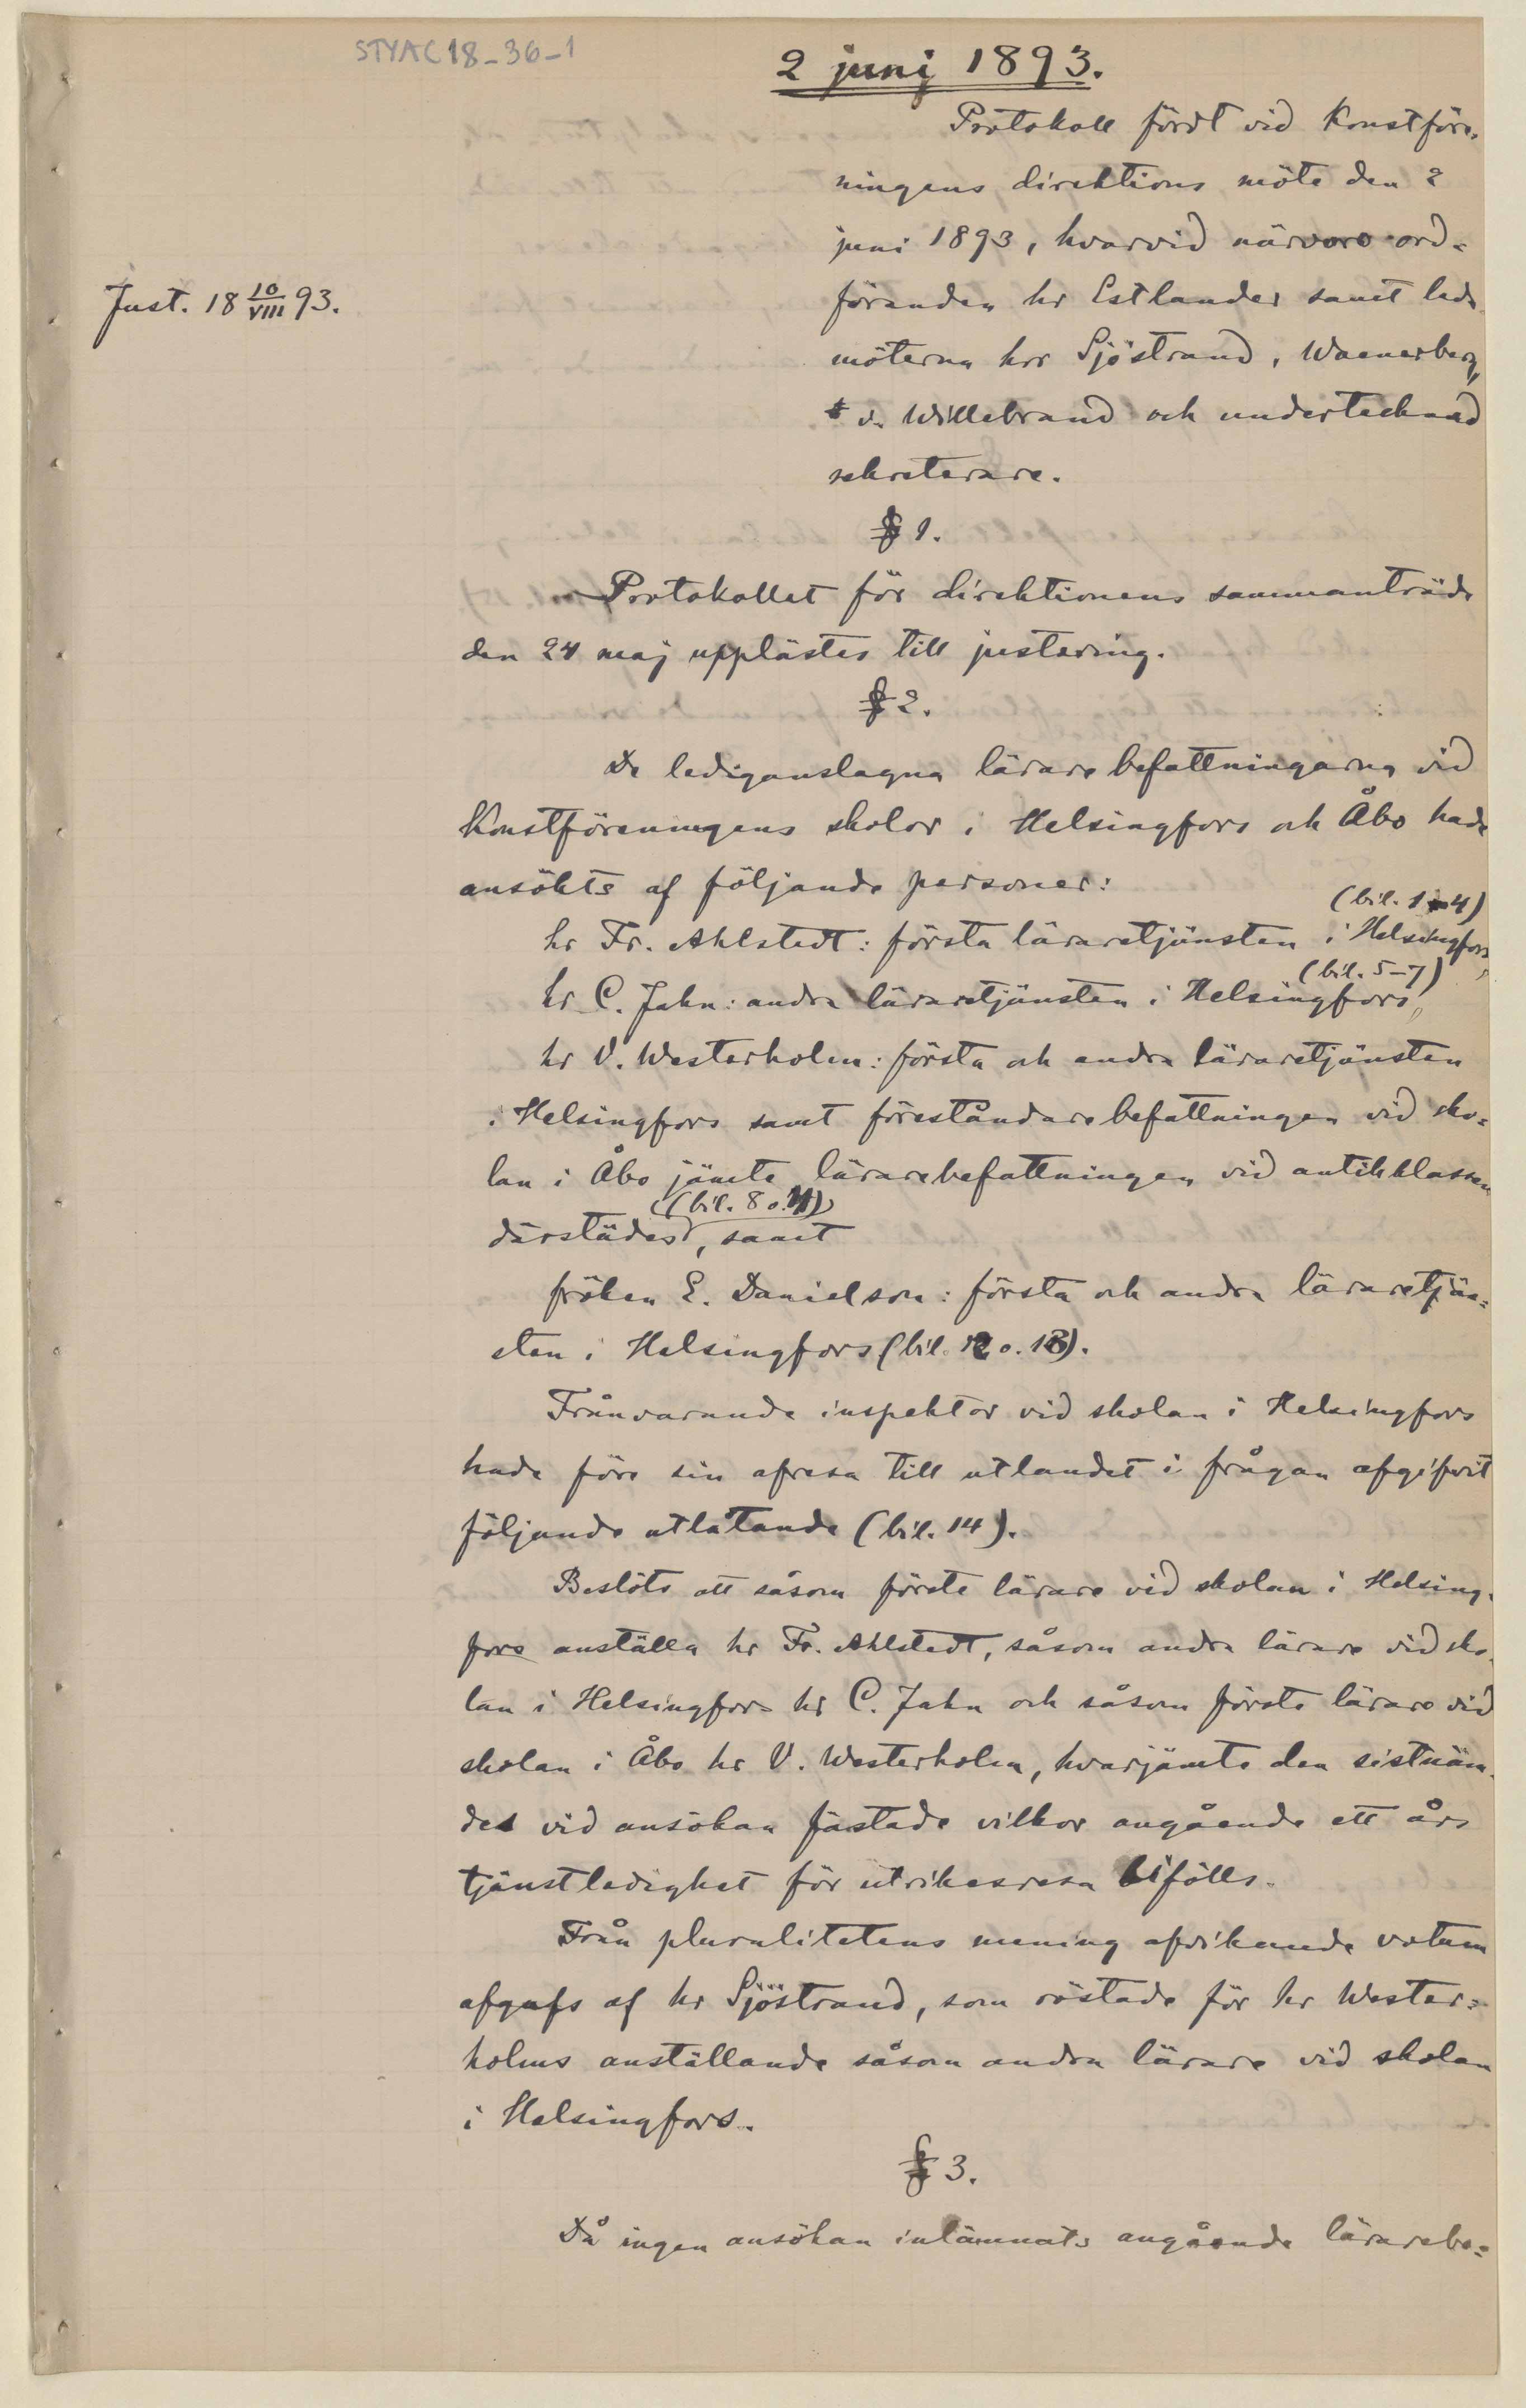 STYAC18-36-1
2 juni 1893.
Protokoll fördt vid Konstföre-
ningens direktions möte den 2
juni 1893, hvarvid närvoro ord-
föranden hr Estlander samt leda-
möterna hrr Sjöstrand, Waenerberg,
v. Willebrand och undertecknad
sekreterare.
Just. 18 10/VIII 93.
§ 1.
Protokollet för direktionens sammanträde
den 24 maj upplästes till justering.
§ 2.
De lediganslagna lärarebefattningarna vid
Konstföreningens skolor i Helsingfors och Åbo hade
ansökts af följande personer:
(bil. 1-4)
hr Fr. Ahlstedt: första läraretjänsten i Helsingfors,
(bil. 5-7)
hr C. Jahn: andra läraretjänsten i Helsingfors,
hr V. Westerholm: första och andra läraretjänsten
i Helsingfors samt föreståndarebefattningen vid sko-
lan i Åbo jämte lärarebefattningen vid antikklassen
(bil. 8 o. 11)
därstädes, samt
fröken E. Danielson: första och andra läraretjän-
sten i Helsingfors (bil. 12 o. 13).
Frånvarande inspektor vid skolan i Helsingfors
hade före sin afresa till utlandet i frågan afgifvit
följande utlåtande (bil. 14).
Beslöts att såsom förste lärare vid skolan i Helsing-
fors anställa hr Fr. Ahlstedt, såsom andra lärare vid sko-
lan i Helsingfors hr C. Jahn och såsom förste lärare vid
skolan i Åbo hr V. Westerholm, hvarjämte den sistnäm-
des vid ansökan fästade vilkor angående ett års
tjänstledighet för utrikesresa bifölls.
Från pluralitetens mening afvikande votum
afgafs af hr Sjöstrand, som röstade för hr Wester-
holms anställande såsom andra lärare vid skolan
i Helsingfors.
§ 3.
Då ingen ansökan inlämnats angående lärarebe-